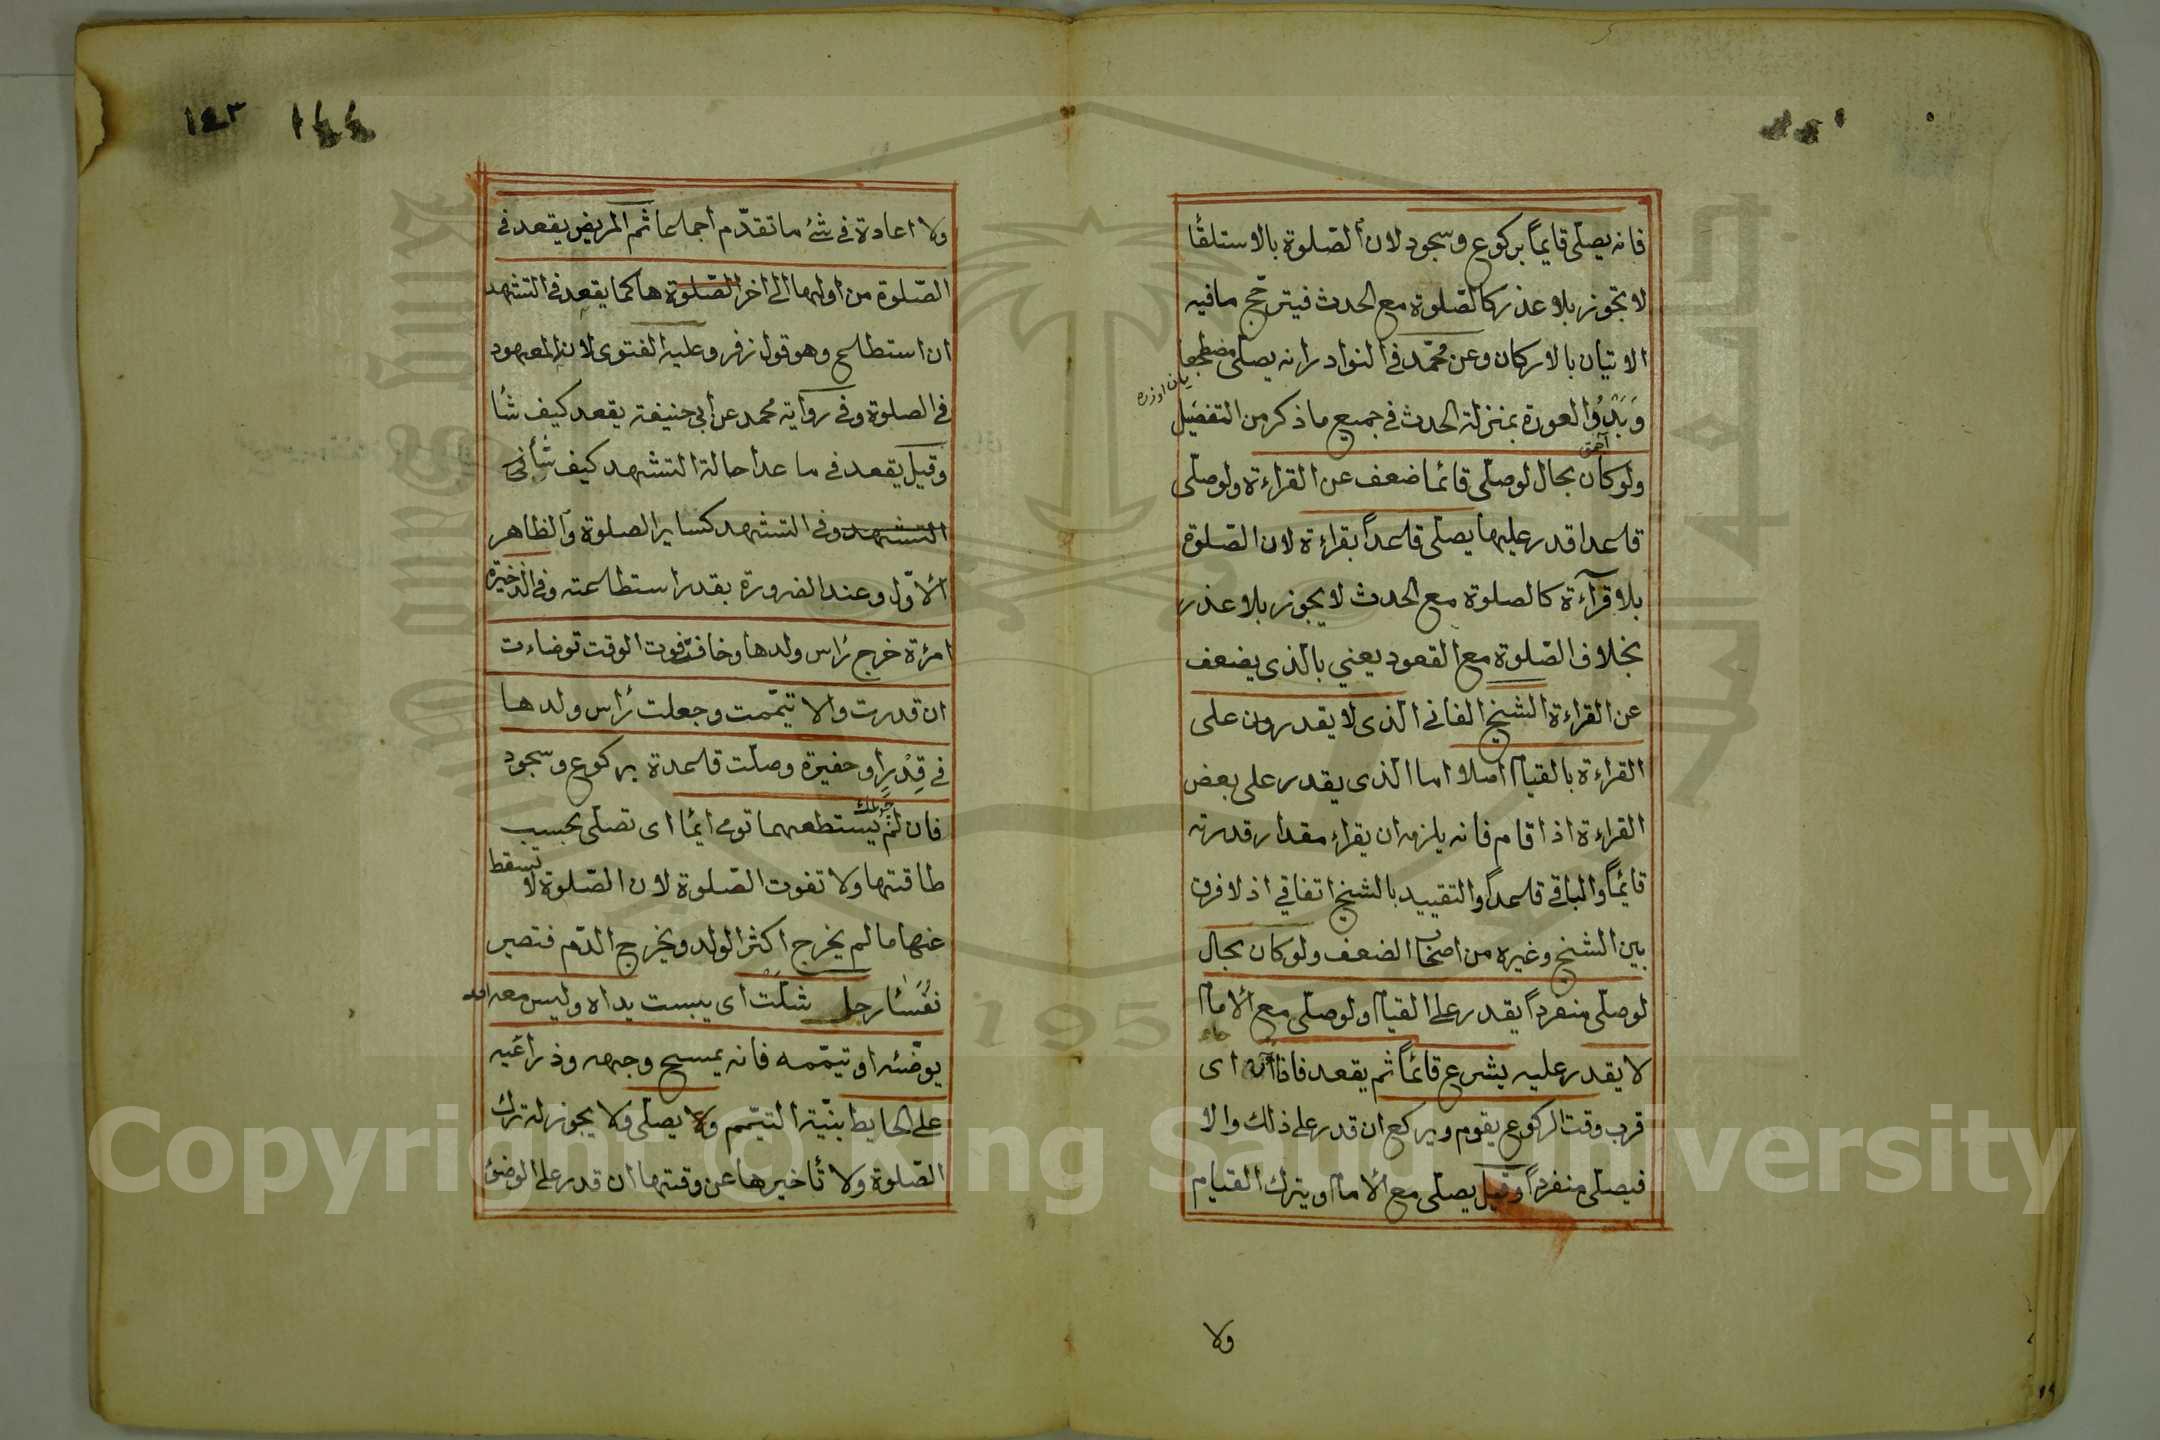 فانه يصلى قايمًا بركوع وسجود لان الصّلوة بالاستلقا
لا تجوز بلا عذر كالصّلوة مع الحدث فيترجّح ما فيه
الاتيان بالاركان وعن محمّد فى النوادر انه يصلى مضطجعا
وَبَدْوُ العورة بمنزلة الحدث فى جميع ما ذكر من التفصيل
ولو كان بحال لو صلّى قائما ضعف عن القراءة ولو صلّى
قاعدا قدر عليها يصلّى قاعدًا بقراءة لان الصّلوة
بلا قرآءة كالصلوة مع الحدث لا يجوز بلا عذر
بخلاف الصّلوة مع القعود يعني بالذى يضعف
عن القراءة الشيخ الفانى الذى لا يقدرون على
القراءة بالقيام اصلا اما الذى يقدر على بعض
القراءة اذا قام فانه يلزمه ان يقراء مقدار قدرته
قايمًا والباقى قاعدًا والتقييد بالشيخ اتفاقي اذ لا فرق
بين الشيخ وغيره من اصحاب الضعف ولو كان بحال
لو صلّى منفردًا يقدر على القيام ولو صلّى مع الامام
لا يقدر عليه يشرع قائمًا ثم يقعد فاذا اى
قرب وقت الركوع يقوم ويركع ان قدر على ذلك والا
فيصلى منفردًا وقيل يصلّى مع الامام ويترك القيام
ولا
١٤٣ ١٤٤
ولا اعادة فى شئ ما تقدّم اجماعا ثم المريض يقعد فى
الصّلوة من اولها الى اخر الصّلوة ها كما يقعد فى التشهد
ان استطاع وهو قول زفر وعليه الفتوى لانه المعهود
فى الصلوة وفى رواية محمد عن ابى حنيفة يقعد كيف شأ
وقيل يقعد فى ما عدا حالة التشهد كيف شأ فى
التشهد وفى التشهد كساير الصلوة والظاهر
الاوّل وعند الضرورة بقدر استطاعته وفى الذخيرة
امرءة خرج رأس ولدها وخافت فوت الوقت توضاءت
ان قدرت والا تيمّمت وجعلت رأس ولدها
فى قِدْرٍ او حفيرة وصلّت قاعدة بركوع وسجود
فان لم يستطعهما تومى ايمًا اى تصلى بحسب
طاقتها ولا تفوت الصّلوة لان الصّلوة لا تسقط
عنها ما لم يخرج اكثر الولد ويخرج الدّم فتصير
نفسًا رجل شلّت اى يبست يداه وليس معه احد
يوضّئه او تيمّمه فانه يمسح وجهه وذراعيه
على الحايط بنيّة التيمّم ولا يصلى ولا يجوز له ترك
الصّلوة ولا تأخيرها عن وقتها ان قدر على الوضوء
Copyright © King Saud University
1957